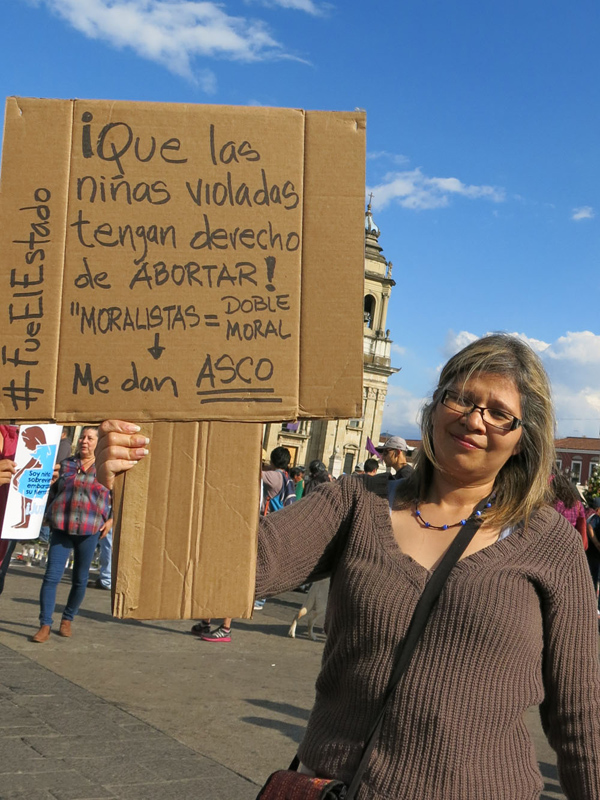 ¡Que las
niñas violadas
tengan derecho
de ABORTAR!
"MORALISTAS = DOBLE
MORAL
Me dan ASCO
#FueElEstado
Soy niña
sobreviví
su